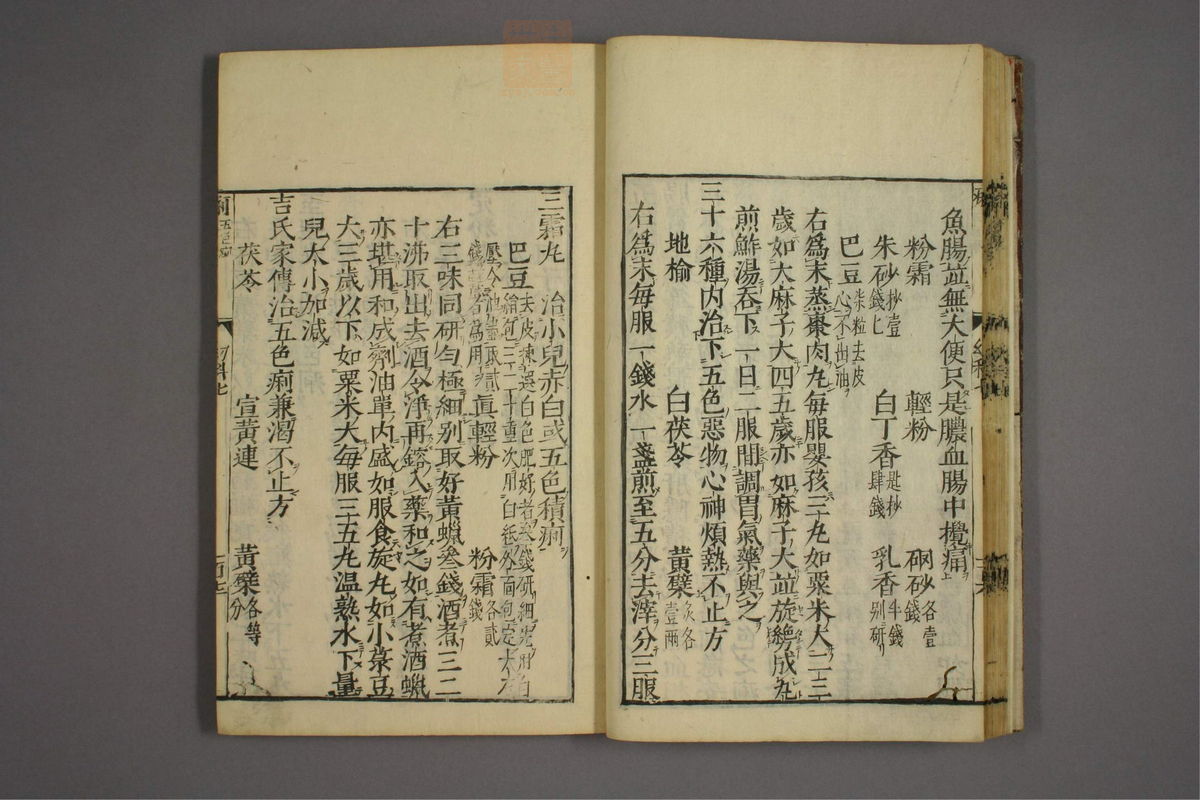 魚腸並無大便只是膿血腸中攪痛
粉霜　輕粉　硇砂各壹錢
朱砂抄壹錢匕　白丁香匙抄肆錢　乳香半錢別研
巴豆柒粒去皮心不出油
右爲末蒸棗肉丸每服嬰孩三丸如粟米大二三
歲如大麻子大四五歲亦如麻子大並旋丸
煎鮓湯吞下一日二服間調胃氣藥與之
三十六種内治下五色惡物心神煩熱不止方
地榆　白茯苓　黃蘗炙各壹兩
右爲末每服一錢水一盞煎至五分去滓分三服
三霜丸　治小兒赤白或五色積痢
巴豆去皮揀選白色肥好者叄錢研細先用白絹包三二十重次用白紙外面包定大
壓令油盡取貳錢爲用　眞輕粉　粉霜各貳錢
右三味同研勻極細别取好黃蠟叄錢酒煮三二
十沸取出去酒令淨再鎔入藥和之如有煮酒蠟
亦堪用和成劑油單内盛如服食旋丸如小菉豆
大三歲以下如粟米大每服三五丸温熱水下量
兒大小加減
吉氏家傳治五色痢兼渴不止方
茯苓　宣黃連　黃蘗各等分